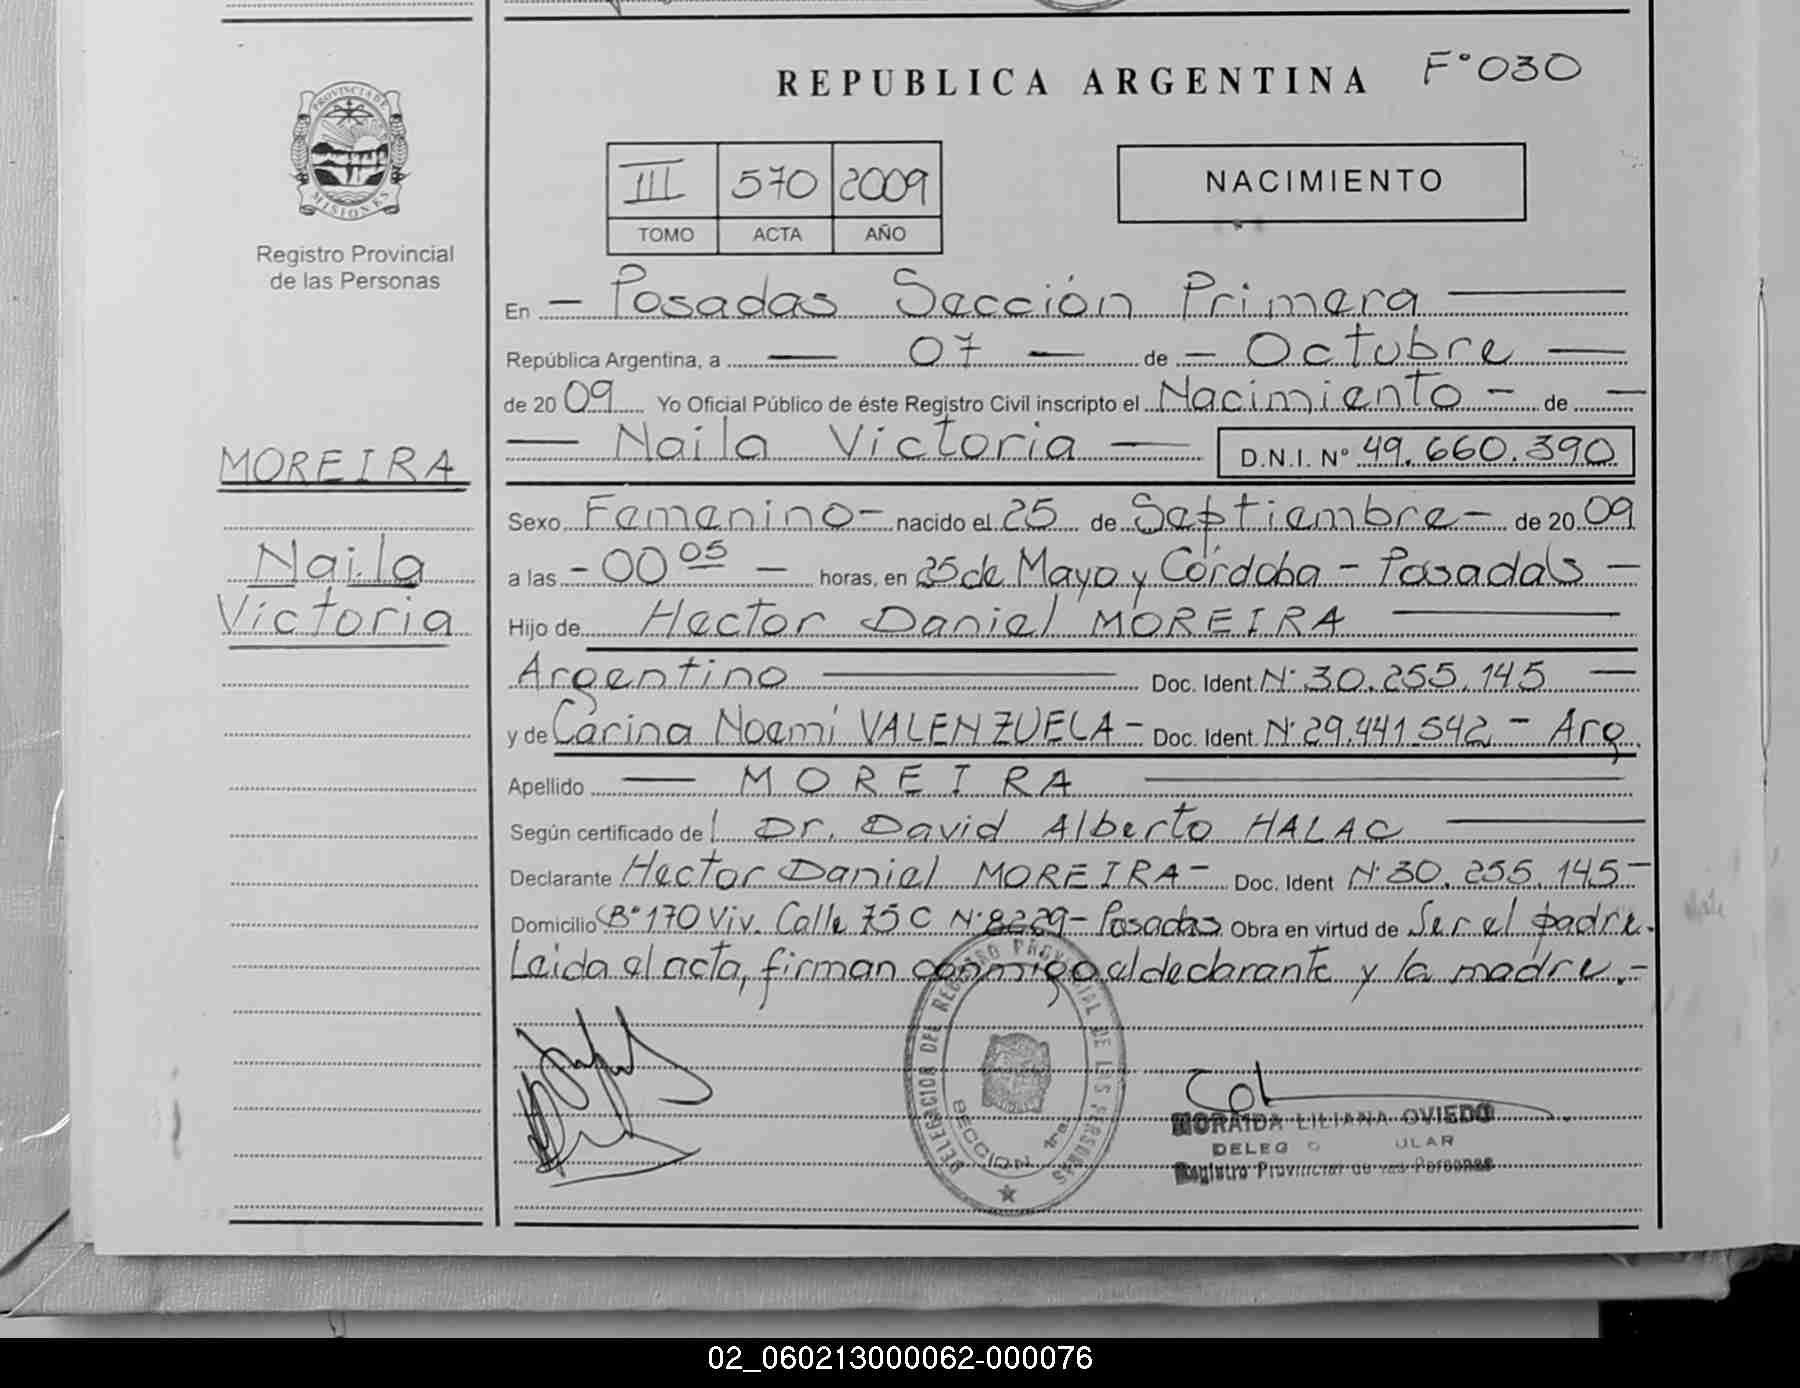 REPUBLICA ARGENTINA F° 030
PROVINCIA DE
MISIONES
Registro Provincial
de las Personas
III 570 2009
TOMO ACTA AÑO
NACIMIENTO
En — Posadas Sección Primera —
República Argentina, a — 07 — de — Octubre —
de 2009 Yo Oficial Público de éste Registro Civil inscripto el Nacimiento — de —
— Naila Victoria — D.N.I. N° 49.660.390
MOREIRA
Naila
Victoria
Sexo Femenino — nacido el 25 de Septiembre — de 2009
a las - 00 05 — horas, en 25 de Mayo y Córdoba - Posadas —
Hijo de Hector Daniel MOREIRA —
Argentino — Doc. Ident. N° 30.255.145 —
y de Carina Noemí VALENZUELA — Doc. Ident. N° 29.441.542 - Arg.
Apellido — MOREIRA —
Según certificado del Dr. David Alberto HALAC —
Declarante Hector Daniel MOREIRA — Doc. Ident N° 30.255.145 —
Domicilio B° 170 Viv. Calle 75 C N° 8229 - Posadas Obra en virtud de Ser el padre.
Leida el acta, firman conmigo el declarante y la madre.-
DELEGACION DEL REGISTRO PROVINCIAL DE LAS PERSONAS
SECCION 1ra.
MORAIDA LILIANA OVIEDO
Registro Provincial de las Personas
02_060213000062-000076